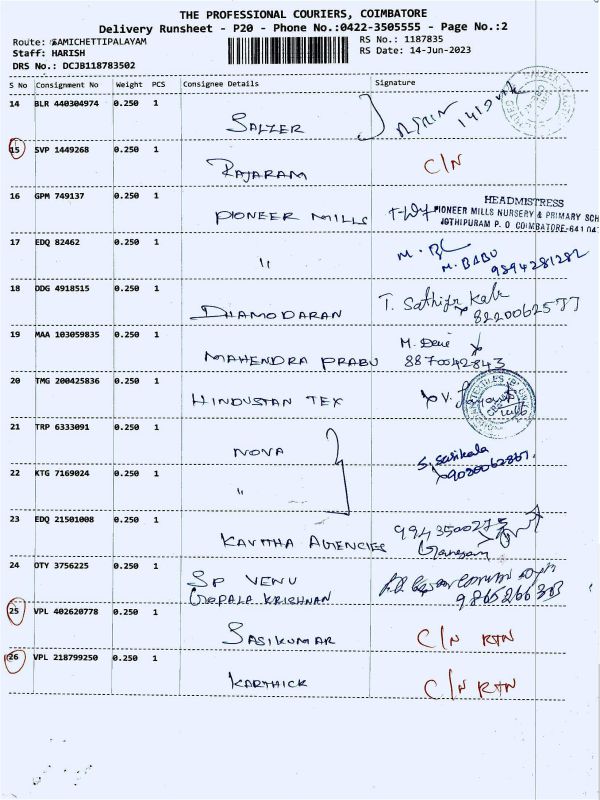 THE PROFESSIONAL COURIERS, COIMBATORE
Delivery Runsheet - P20 - Phone No.:0422-3505555 - Page No.:2
Route: SAMICHETTIPALAYAM RS No.: 1187835
Staff: HARISH RS Date: 14-Jun-2023
DRS No.: DCJB118783502
S No Consignment No Weight PCS Consignee Details Signature
14 BLR 440304974 0.250 1
SALZER
15 SVP 1449268 0.250 1
RAJARAM C/N
16 GPM 749137 0.250 1
HEADMISTRESS
PIONEER MILLS PIONEER MILLS NURSERY & PRIMARY SCH
JOTHIPURAM P. O COIMBATORE-641 047
17 EDQ 82462 0.250 1
" M. BABU
9894281282
18 DDG 4918515 0.250 1
DHAMODARAN T. Sathiya Kala
8220062577
19 MAA 103059835 0.250 1
M. Devi
MAHENDRA PRABU 8870042843
20 TMG 200425836 0.250 1
HINDUSTAN TEX V.
21 TRP 6333091 0.250 1
NOVA S. Sasikala
22 KTG 7169024 0.250 1
"
23 EDQ 21501008 0.250 1
9943500275
KAVITHA AGENCIES Ganesan
24 OTY 3756225 0.250 1
SP VENU
GOPALA KRISHNAN 9865266303
25 VPL 402620778 0.250 1
SASIKUMAR C/N RTN
26 VPL 218799250 0.250 1
KARTHICK C/N RTN